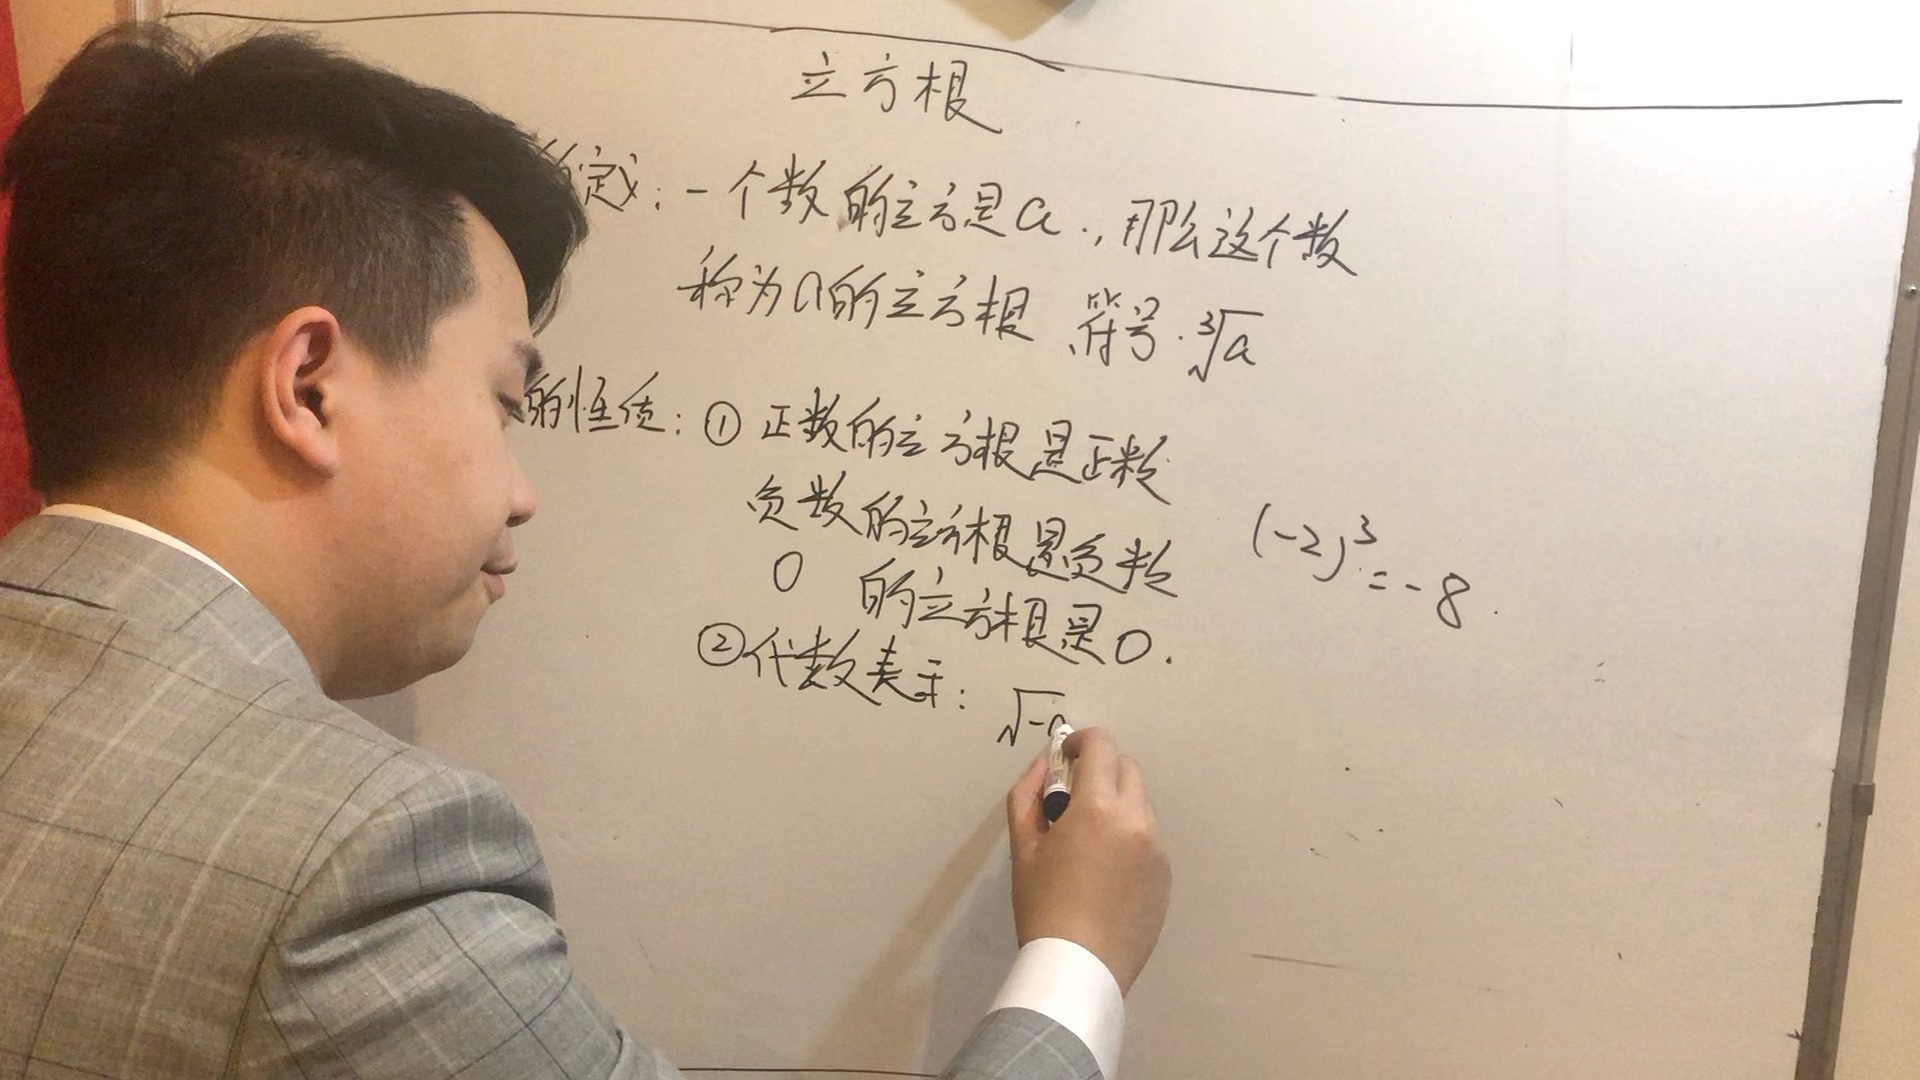 立方根
的定义：一个数的立方是a.，那么这个数
称为a的立方根 符号.∛a
的性质：① 正数的立方根是正数
负数的立方根是负数
0 的立方根是0.
(-2)³=-8.
②代数表示：√-a